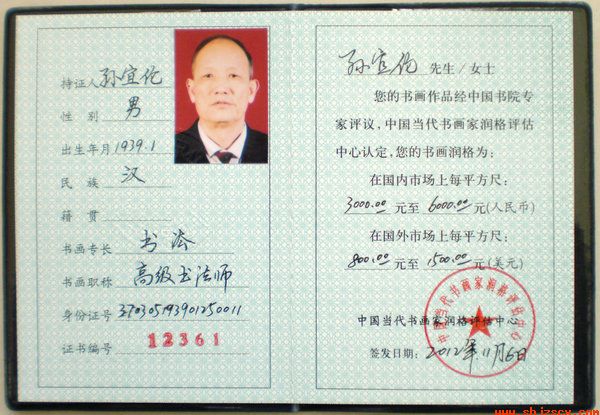 持证人 孙宜伦
性别 男
出生年月 1939.1
民族 汉
籍贯
书画专长 书法
书画职称 高级书法师
身份证号 370305193901250011
证书编号 12361
孙宜伦 先生/女士
您的书画作品经中国书院专
家评议,中国当代书画家润格评估
中心认定,您的书画润格为:
在国内市场上每平方尺:
3000.00 元至 6000.00 元(人民币)
在国外市场上每平方尺:
800.00 元至 1500.00 元(美元)
中国当代书画家润格评估中心
中国当代书画家润格评估中心
签发日期: 2012年11月6日
www.shizscx.com